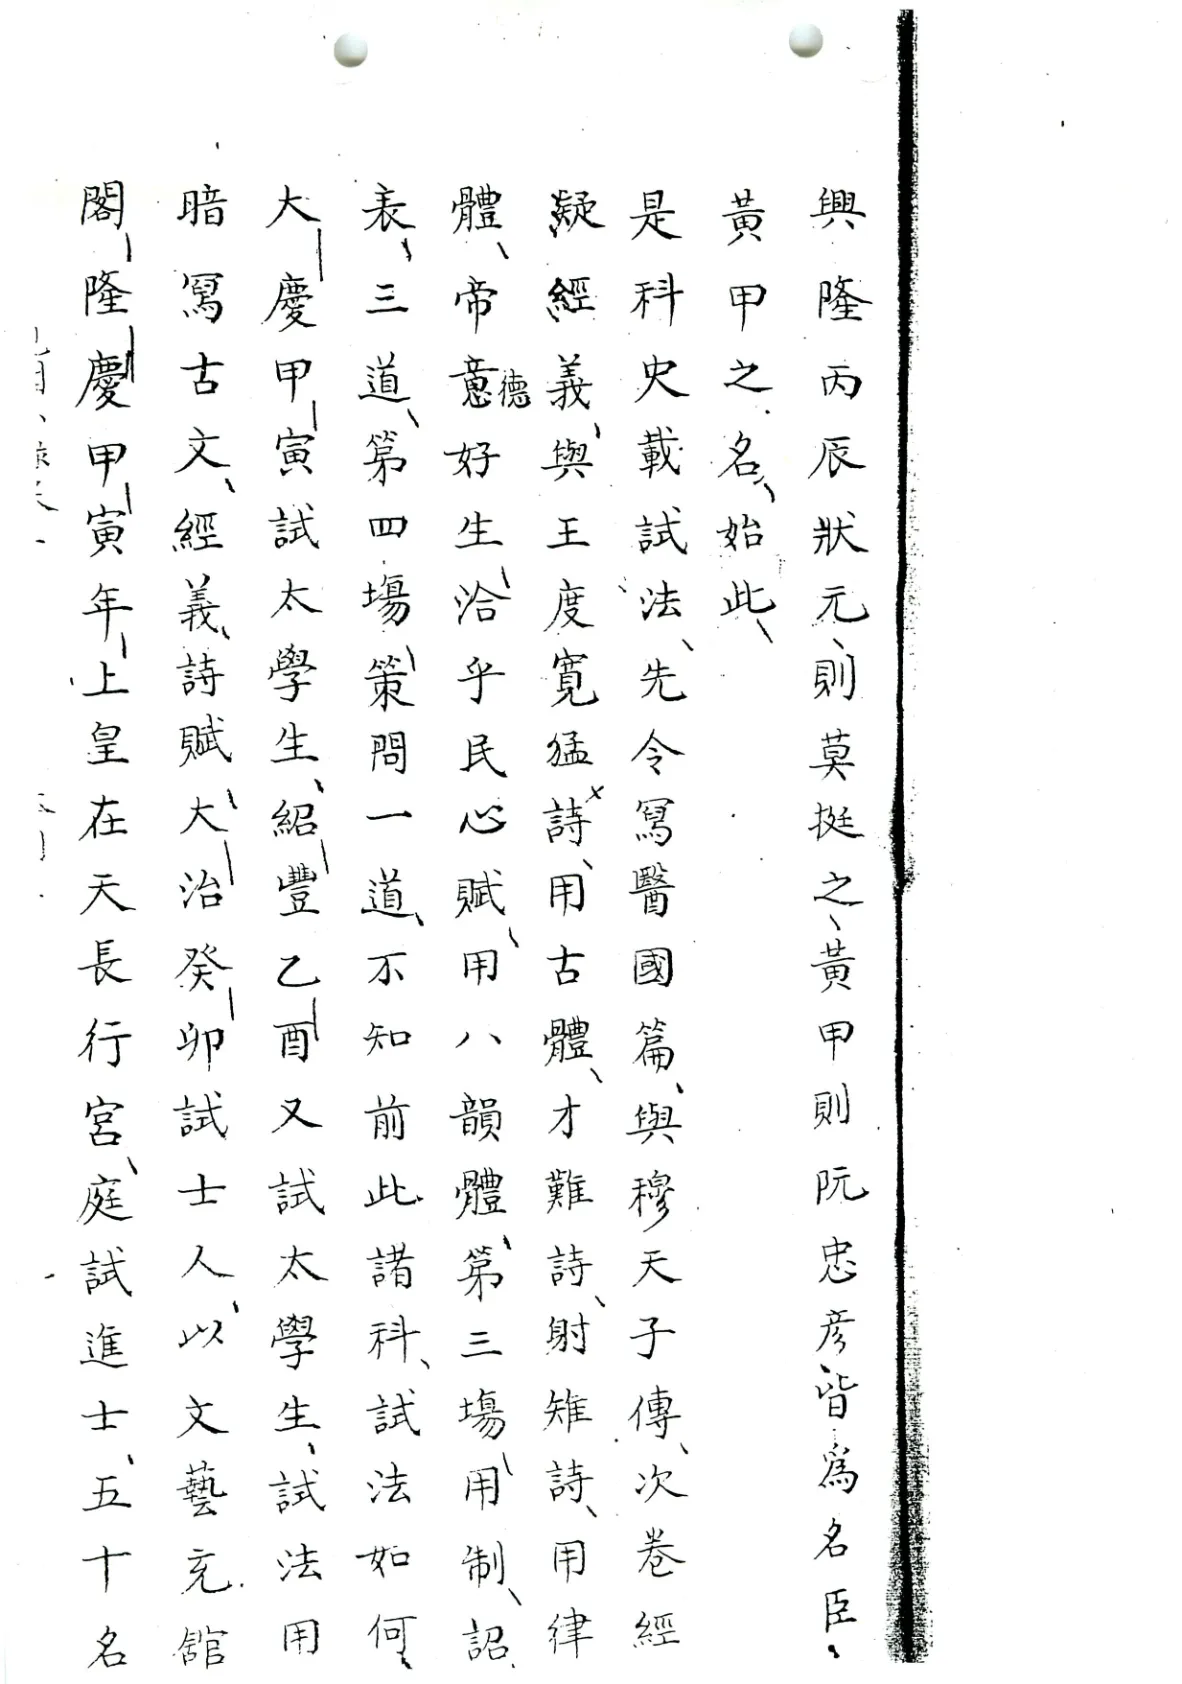 興隆丙辰狀元、則莫挺之、黃甲則阮忠彥、皆為名臣、
黃甲之名、始此、
是科史載試法、先令寫醫國篇、與穆天子傳、次卷經
疑經義、與王度寬猛詩、用古體、才難詩、射雉詩、用律
體、帝意德好生洽乎民心賦、用八韻體、第三場、用制、詔
表、三道、第四場、策問一道、不知前此諸科、試法如何、
大慶甲寅試太學生、紹豐乙酉又試太學生、試法用
暗寫古文、經義、詩賦、大治癸卯試士人、以文藝充舘
閣、隆慶甲寅年上皇在天長行宮、庭試進士、五十名